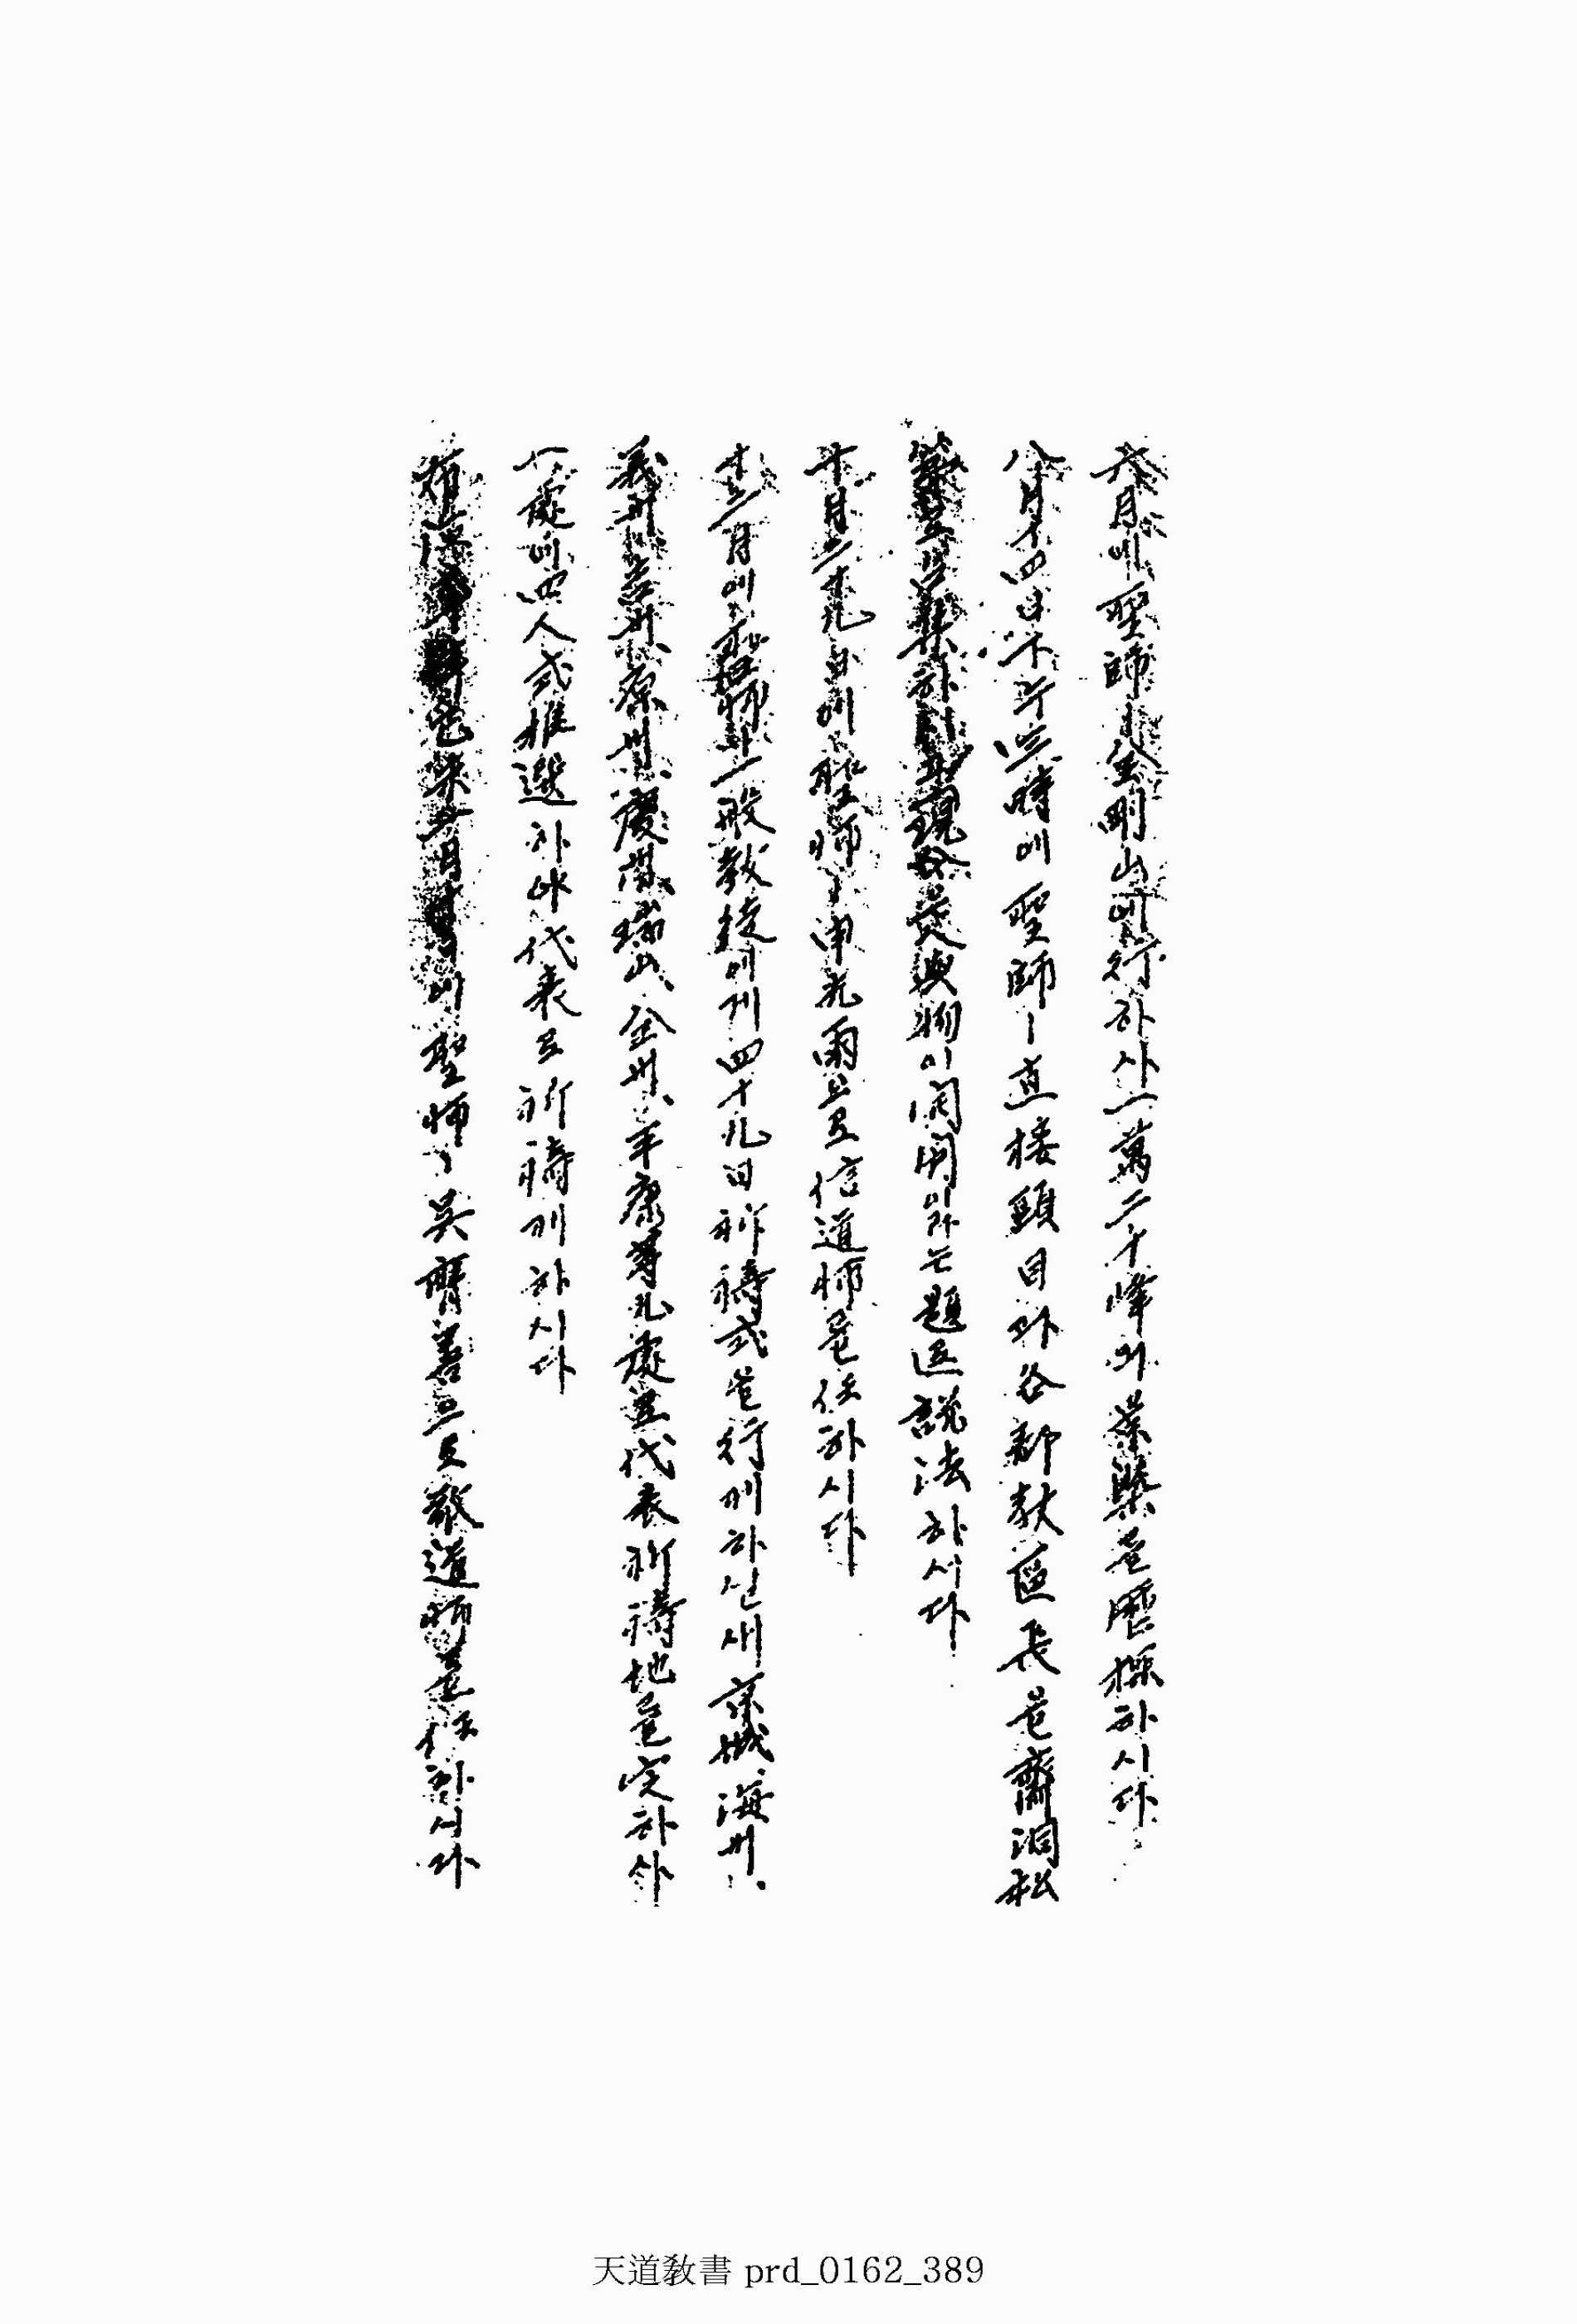 六月에 聖師ㅣ 金剛山에 行하사 一萬二千峰의 景槩를 歷探하시다
八月十四日下午三時에 聖師ㅣ 直接頭目과 各郡敎區長을 齋洞松
召集하 現 物이 開闢이라는 題로 說法하시다
十月二十九日에 聖師ㅣ 申光雨으로 信道師를 任하시다
十二月에 聖師ㅣ 一般敎徒에게 四十九日祈禱式을 行께하신새 京城、海州、
義州、吉州、原州、慶州、瑞山、全州、平康等九處로 代表祈禱地를 定하사
一處에 四人式推選하야 代表로 祈禱께하시다
布德 月 에 聖師ㅣ 吳膺善으로 敬道師를 任하시다
天道敎書 prd_0162_389